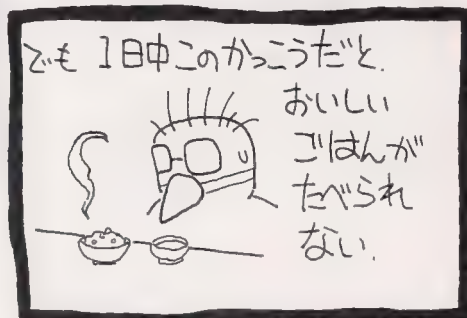 でも 1日中このかっこうだと.
おいしい
ごはんが
たべられ
ない.